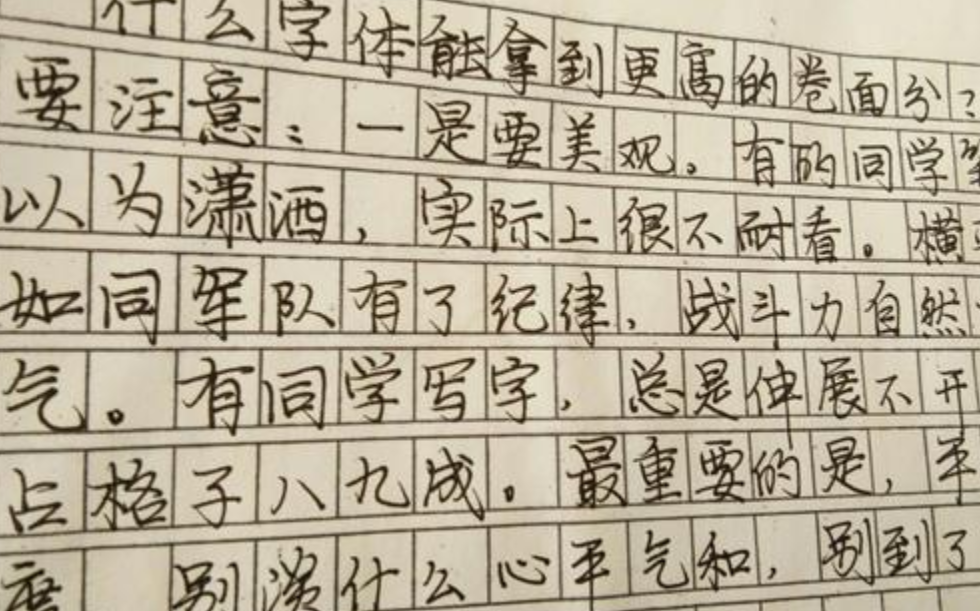 什么字体能拿到更高的卷面分?
要注意:一是要美观。有的同学
以为潇洒,实际上很不耐看。横
如同军队有了纪律,战斗力自然
气。有同学写字,总是伸展不开
占格子八九成。最重要的是,平
别谈什么心平气和,别到了